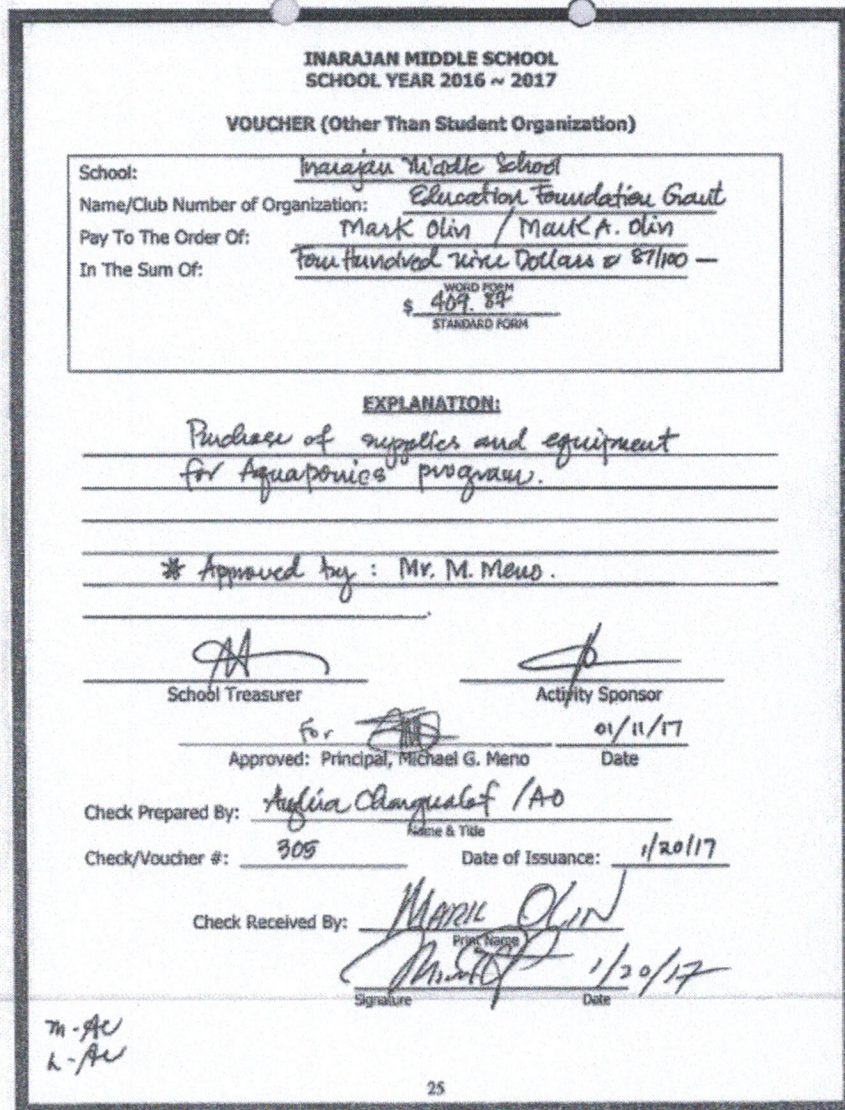 INARAJAN MIDDLE SCHOOL
SCHOOL YEAR 2016 ~ 2017
VOUCHER (Other Than Student Organization)
School: Inarajan Middle School
Name/Club Number of Organization: Education Foundation Grant
Pay To The Order Of: Mark Olin / Mark A. Olin
In The Sum Of: Four Hundred nine Dollars & 87/100 —
WORD FORM
$ 409.87
STANDARD FORM
EXPLANATION:
Purchase of supplies and equipment
for Aquaponics program.
* Approved by : Mr. M. Meno.
School Treasurer Activity Sponsor
For 01/11/17
Approved: Principal, Michael G. Meno Date
Check Prepared By: /AO
Name & Title
Check/Voucher #: 305 Date of Issuance: 1/20/17
Check Received By: MARK OLIN
Print Name
1/20/17
Signature Date
25